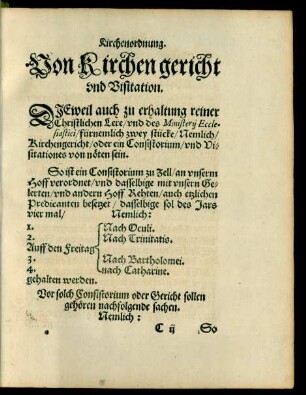 Kirchenordnung.
Von Kirchen gericht
vnd Visitation.
DIEweil auch zu erhaltung reiner
Christlichen Lere/ vnd des Ministerij Eccle-
siastici/ fürnemlich zwey stücke/ Nemlich/
Kirchengericht/ oder ein Consistorium/ vnd Vi-
sitationes von nöten sein.
So ist ein Consistorium zu Zell/ an vnserm
Hoff verordnet/ vnd dasselbige mit vnsern Ge-
lerten/ vnd andern Hoff Rehten/ auch etzlichen
Predicanten besetzet/ dasselbige sol des Jars
vier mal/ Nemlich:
1. Nach Oculi.
2. Nach Trinitatis.
Auff den Freitag
3. Nach Bartholomei.
4. nach Catharine.
gehalten werden.
Vor solch Consistorium oder Gericht sollen
gehören nachfolgende sachen.
Nemlich:
C ij So